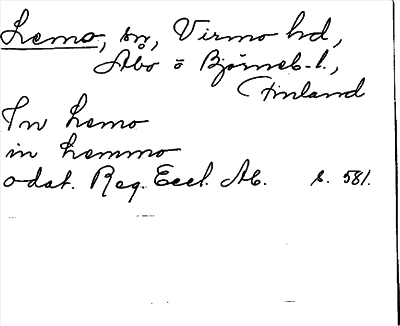 Lemo, sn, Virmo hd,
Åbo o Björneb. l.,
Finland
In Lemo
in Lemmo
odat. Reg. Eccl. Ab. s. 581.